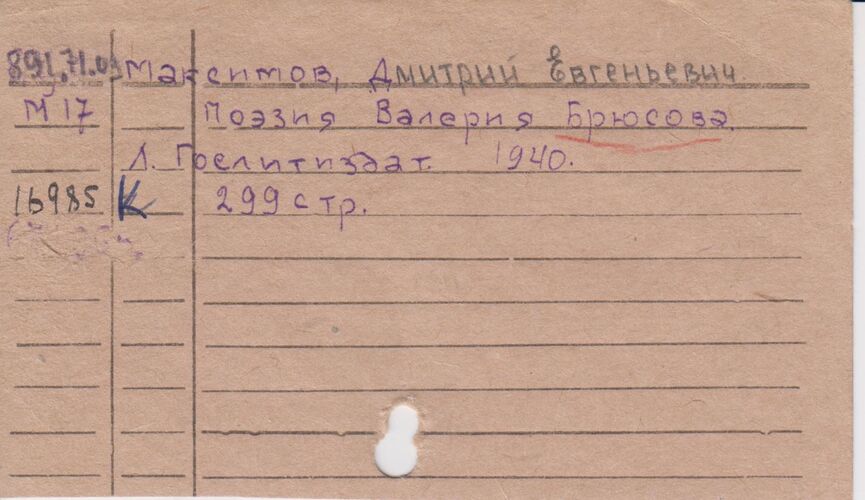 891.71.09 Максимов, Дмитрий Евгеньевич.
М 17 Поэзия Валерия Брюсова.
Л. Гослитиздат. 1940.
16985 К 299 стр.